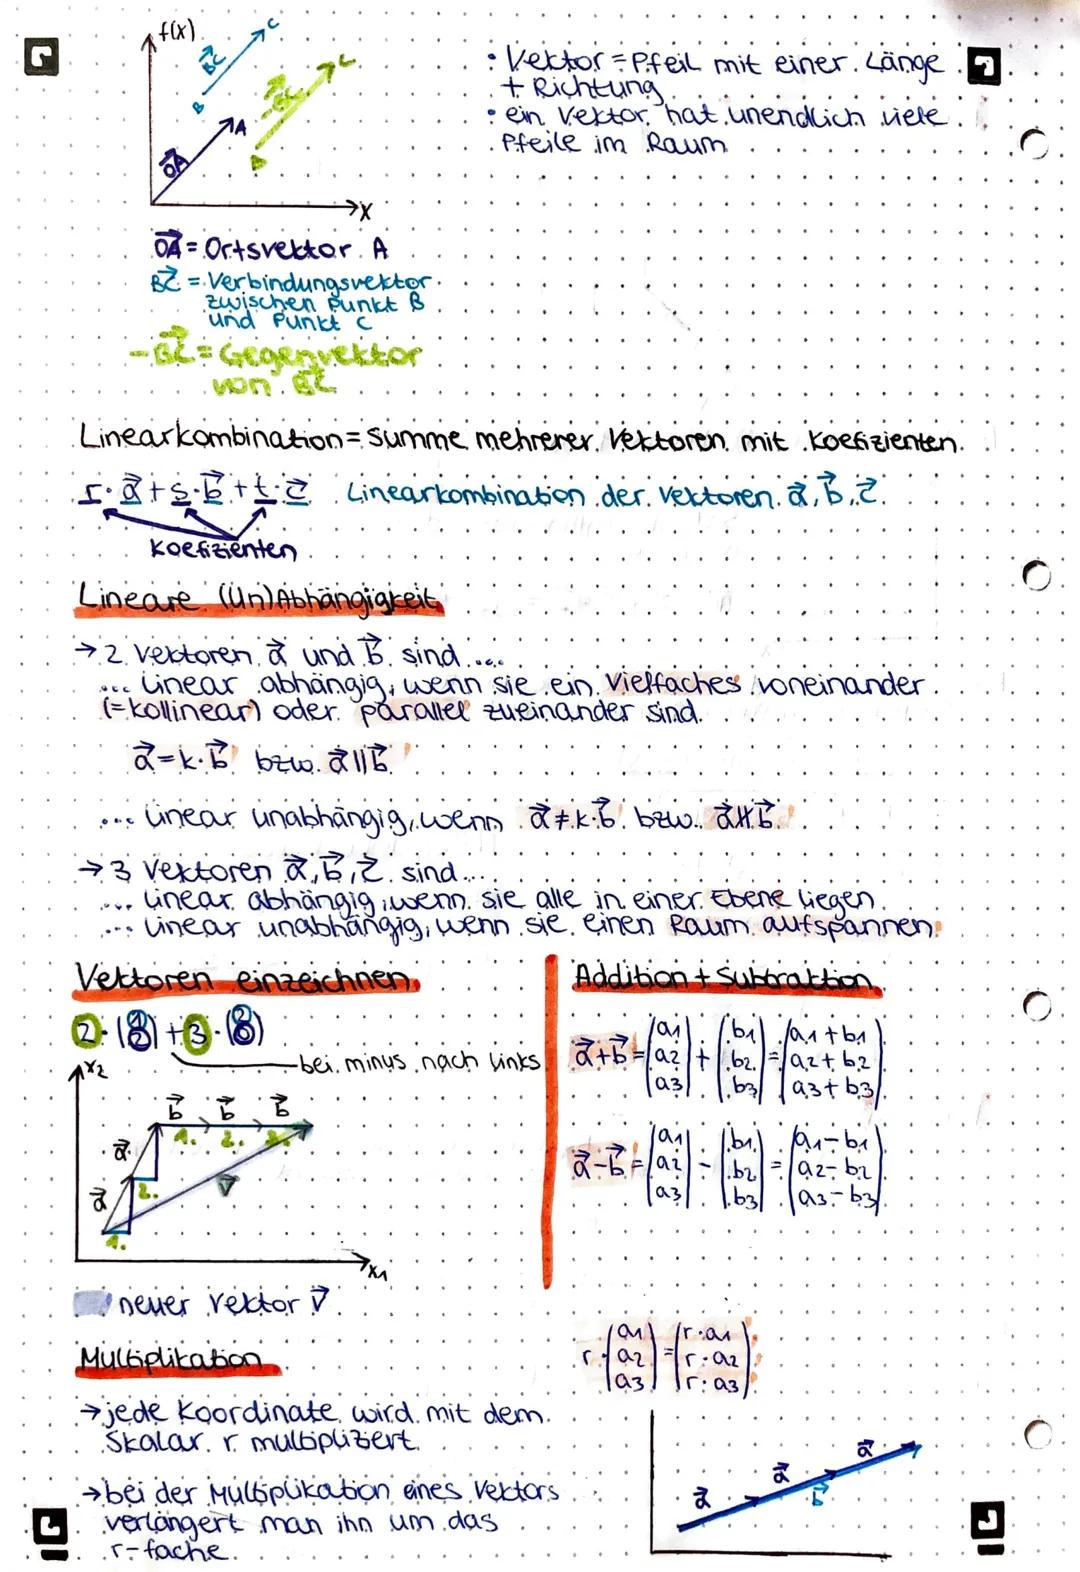 f(x)
C
BC
B
-BC
C
A
B
OA
x
• Vektor = Pfeil mit einer Länge
+ Richtung
• ein Vektor hat unendlich viele
Pfeile im Raum
OA = Ortsvektor A
BC = Verbindungsvektor
zwischen Punkt B
und Punkt C
-BC = Gegenvektor
von BC
Linearkombination = Summe mehrerer Vektoren mit Koefizienten
r·a⃗ + s·b⃗ + t·c⃗ Linearkombination der Vektoren a⃗, b⃗, c⃗
Koefizienten
Lineare (Un)Abhängigkeit
→ 2 Vektoren a⃗ und b⃗ sind ...
... linear abhängig, wenn sie ein Vielfaches voneinander
(= kollinear) oder parallel zueinander sind.
a⃗ = k·b⃗ bzw. a⃗ ∥ b⃗
... linear unabhängig, wenn a⃗ ≠ k·b⃗ bzw. a⃗ ∦ b⃗
→ 3 Vektoren a⃗, b⃗, c⃗ sind...
... linear abhängig, wenn sie alle in einer Ebene liegen
... linear unabhängig, wenn sie einen Raum aufspannen
Vektoren einzeichnen
2· + 3·
bei minus nach links
x2
b⃗ b⃗ b⃗
1. 2. 3.
a⃗
2.
a⃗
v⃗
1.
x1
neuer Vektor v⃗
Addition + Subtraktion
a⃗ + b⃗ = (a1 a2 a3) + (b1 b2 b3) = (a1 + b1 a2 + b2 a3 + b3)
a⃗ - b⃗ = (a1 a2 a3) - (b1 b2 b3) = (a1 - b1 a2 - b2 a3 - b3)
Multiplikation
r·(a1 a2 a3) = (r·a1 r·a2 r·a3)
→ jede Koordinate wird mit dem
Skalar r multipliziert
→ bei der Multiplikation eines Vektors
verlängert man ihn um das
r-fache
a⃗ a⃗ a⃗
b⃗